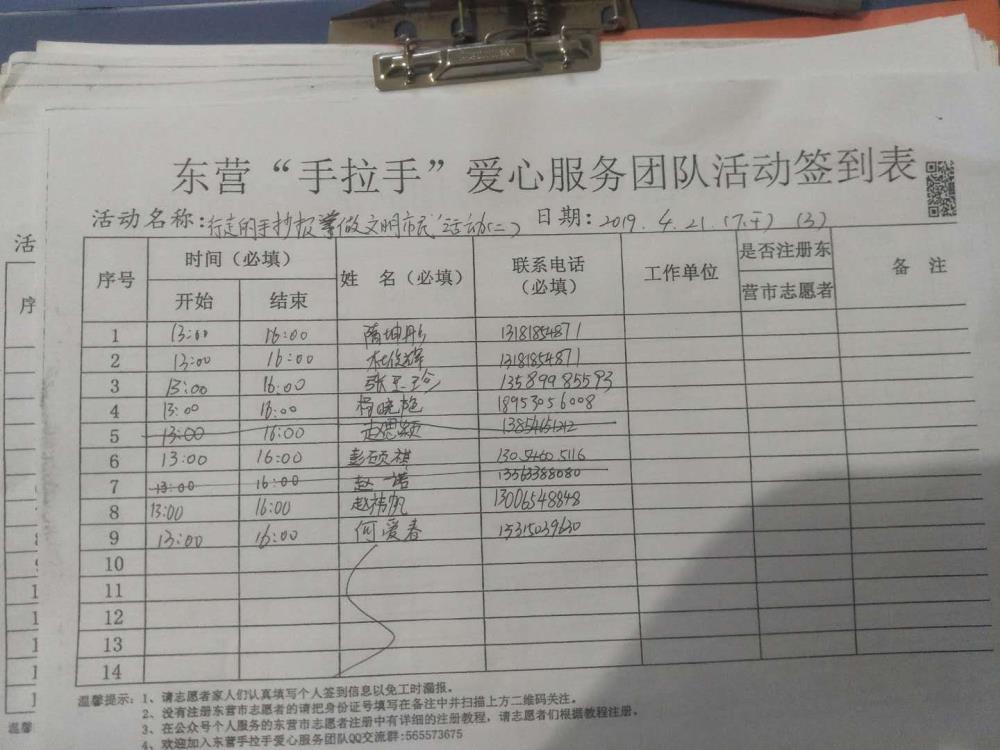 东营“手拉手”爱心服务团队活动签到表
活动名称:行走的手抄报 做文明市民活动(二) 日期:2019.4.21(下午) (3)
序号 时间(必填) 姓 名(必填) 联系电话(必填) 工作单位 是否注册东营市志愿者 备 注
开始 结束
1 13:00 16:00 隋坤彤 13181854871
2 13:00 16:00 杜俊辉 13181854871
3 13:00 16:00 张玉珍 13589985593
4 13:00 16:00 杨晓艳 18953056008
5 13:00 16:00 赵思颖
6 13:00 16:00 彭硕祺 13054605116
7 13:00 16:00 赵一诺 13563388080
8 13:00 16:00 赵祎帆 13006548848
9 13:00 16:00 何爱春 15315039630
10
11
12
13
14
温馨提示:1、请志愿者家人们认真填写个人签到信息以免工时漏报。
2、没有注册东营市志愿者的请把身份证号填写在备注中并扫描上方二维码关注。
3、在公众号个人服务的东营市志愿者注册中有详细的注册教程,请志愿者们根据教程注册。
4、欢迎加入东营手拉手爱心服务团队QQ交流群:565573675
活
序
温馨